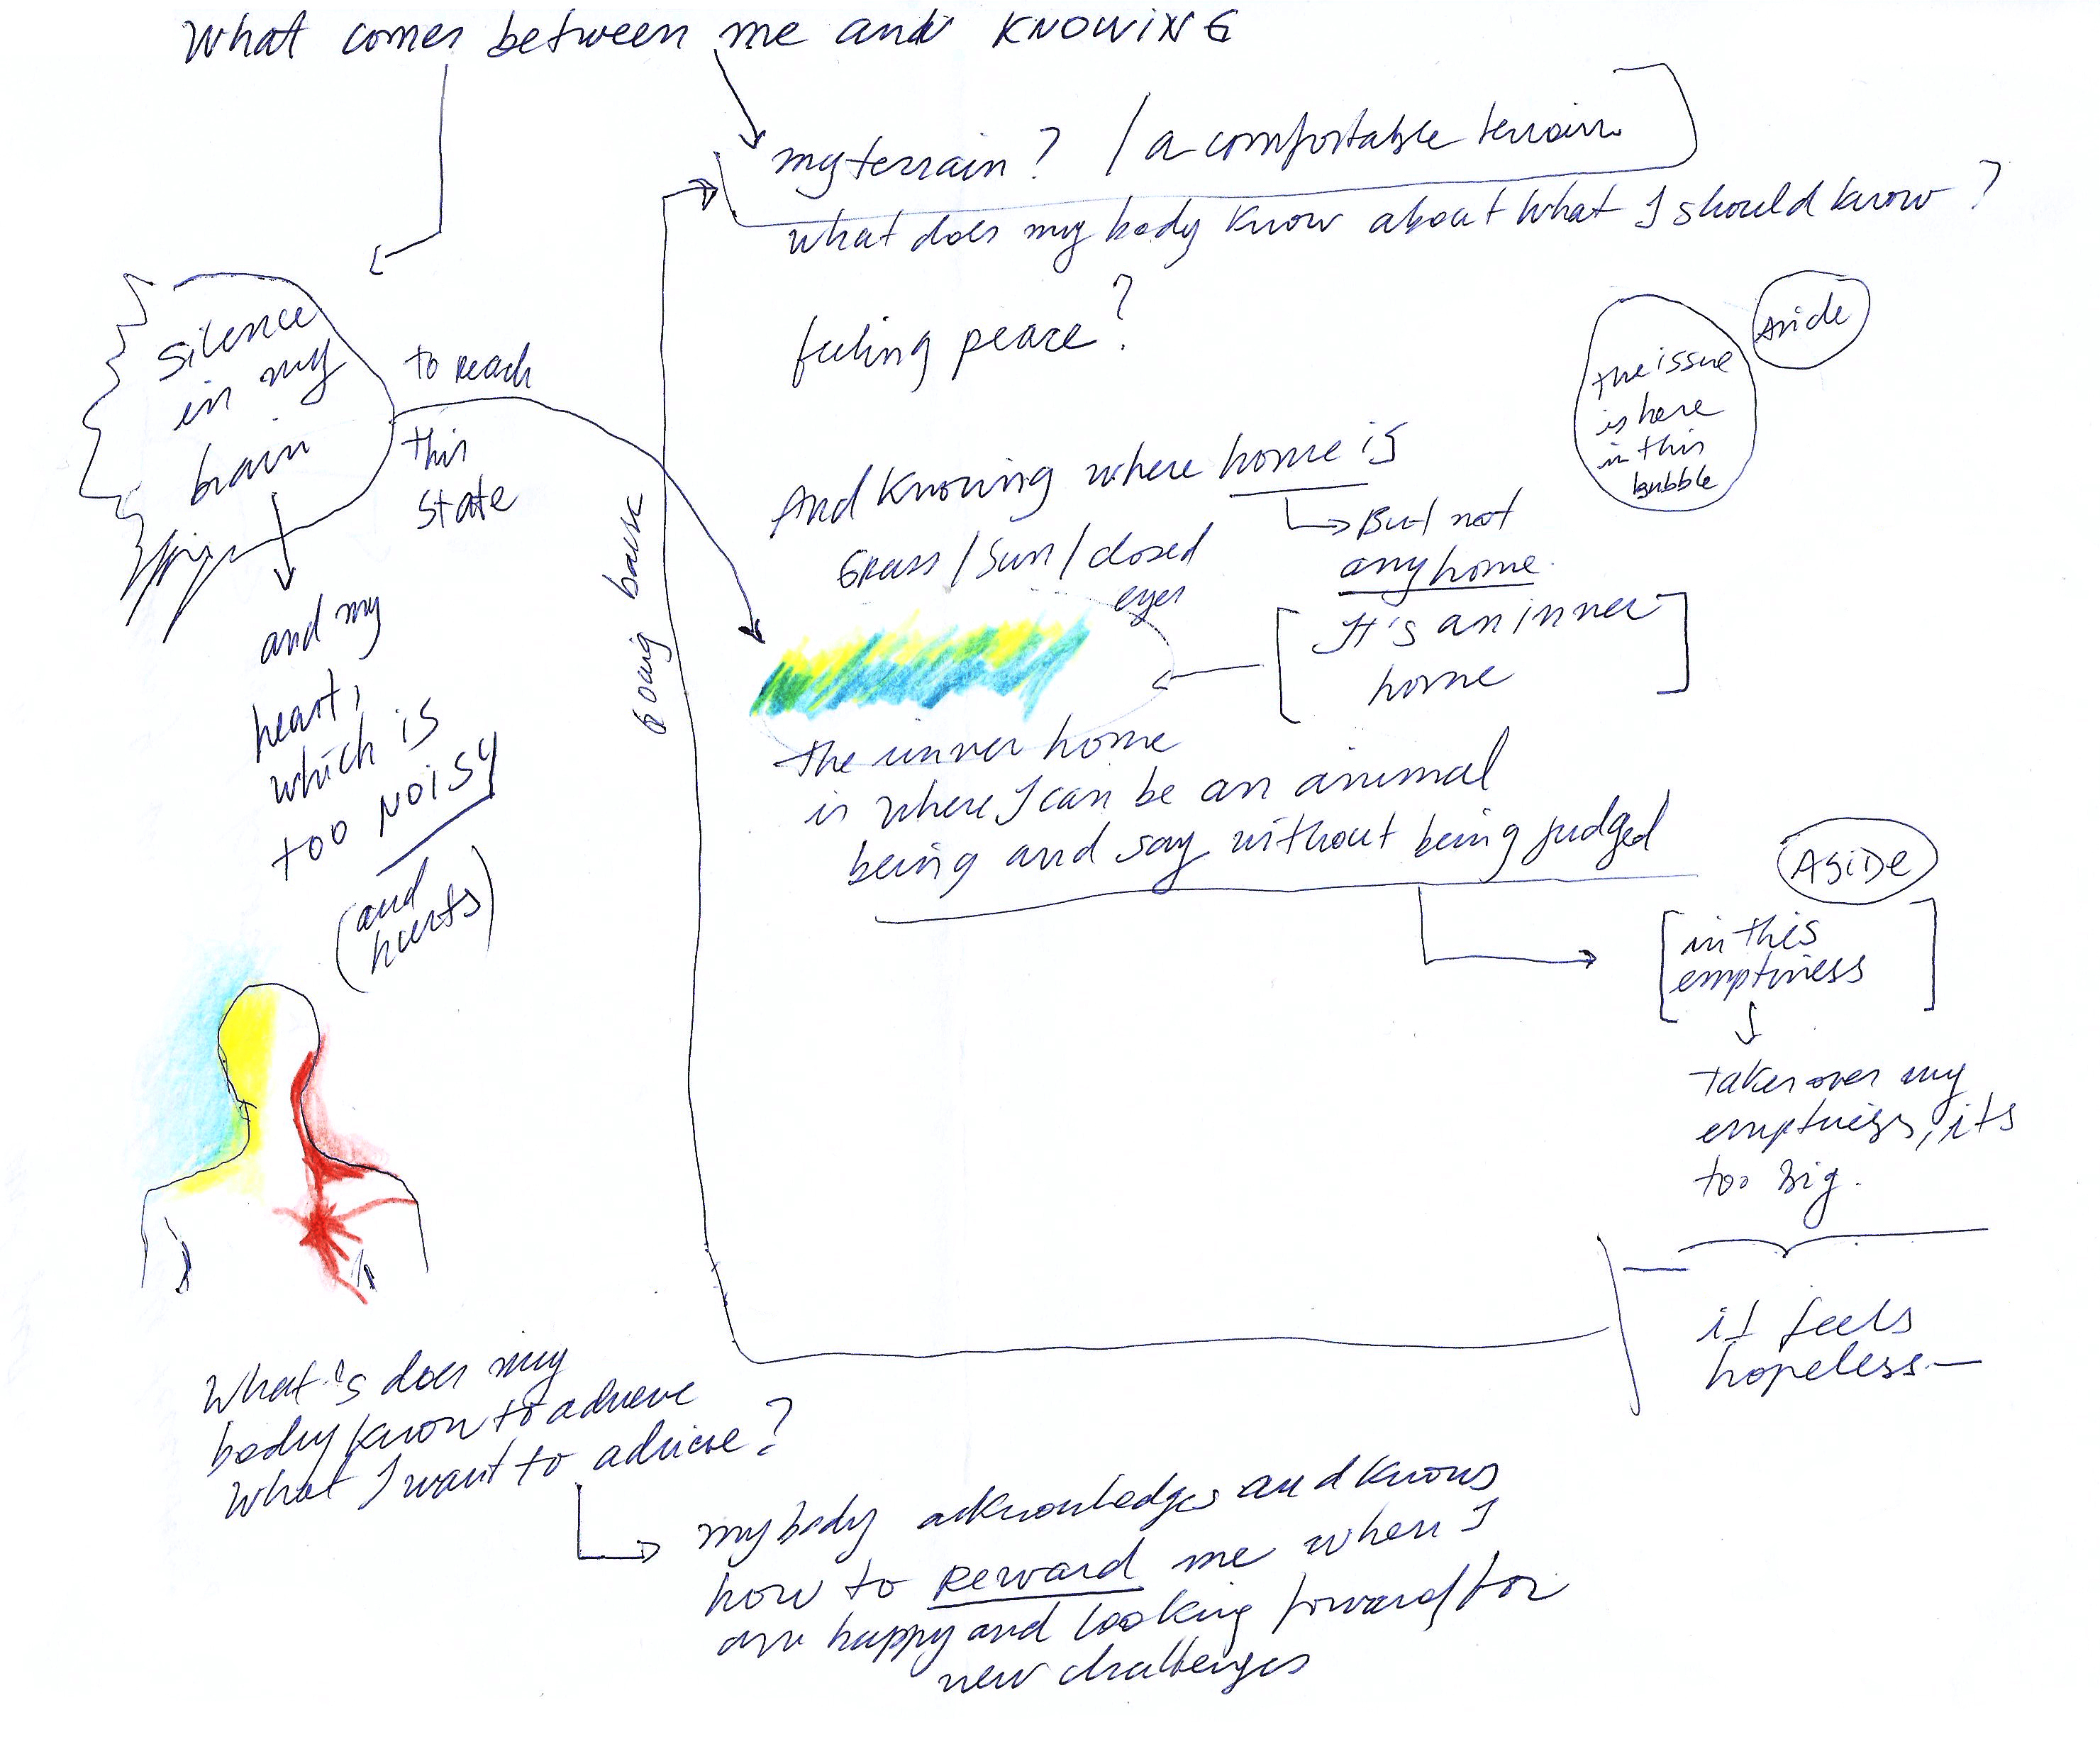 What comes between me and KNOWING
my terrain? / a comfortable terrain
what does my body know about what I should know?
feeling peace?
Silence
in my
brain
to reach
this
state
and my
heart,
which is
too NOISY
(and
hurts)
going back
Aside
the issue
is here
in this
bubble
And Knowing where home is
But not
any home.
Grass / Sun / closed
eyes
It's an inner
home
the inner home
is where I can be an animal
being and say without being judged
ASIDE
in this
emptiness
takes over my
emptiness, its
too big.
it feels
hopeless—
What's does my
body know to achieve
what I want to achieve?
my body acknowledges and knows
how to Reward me when I
am happy and looking forward for
new challenges